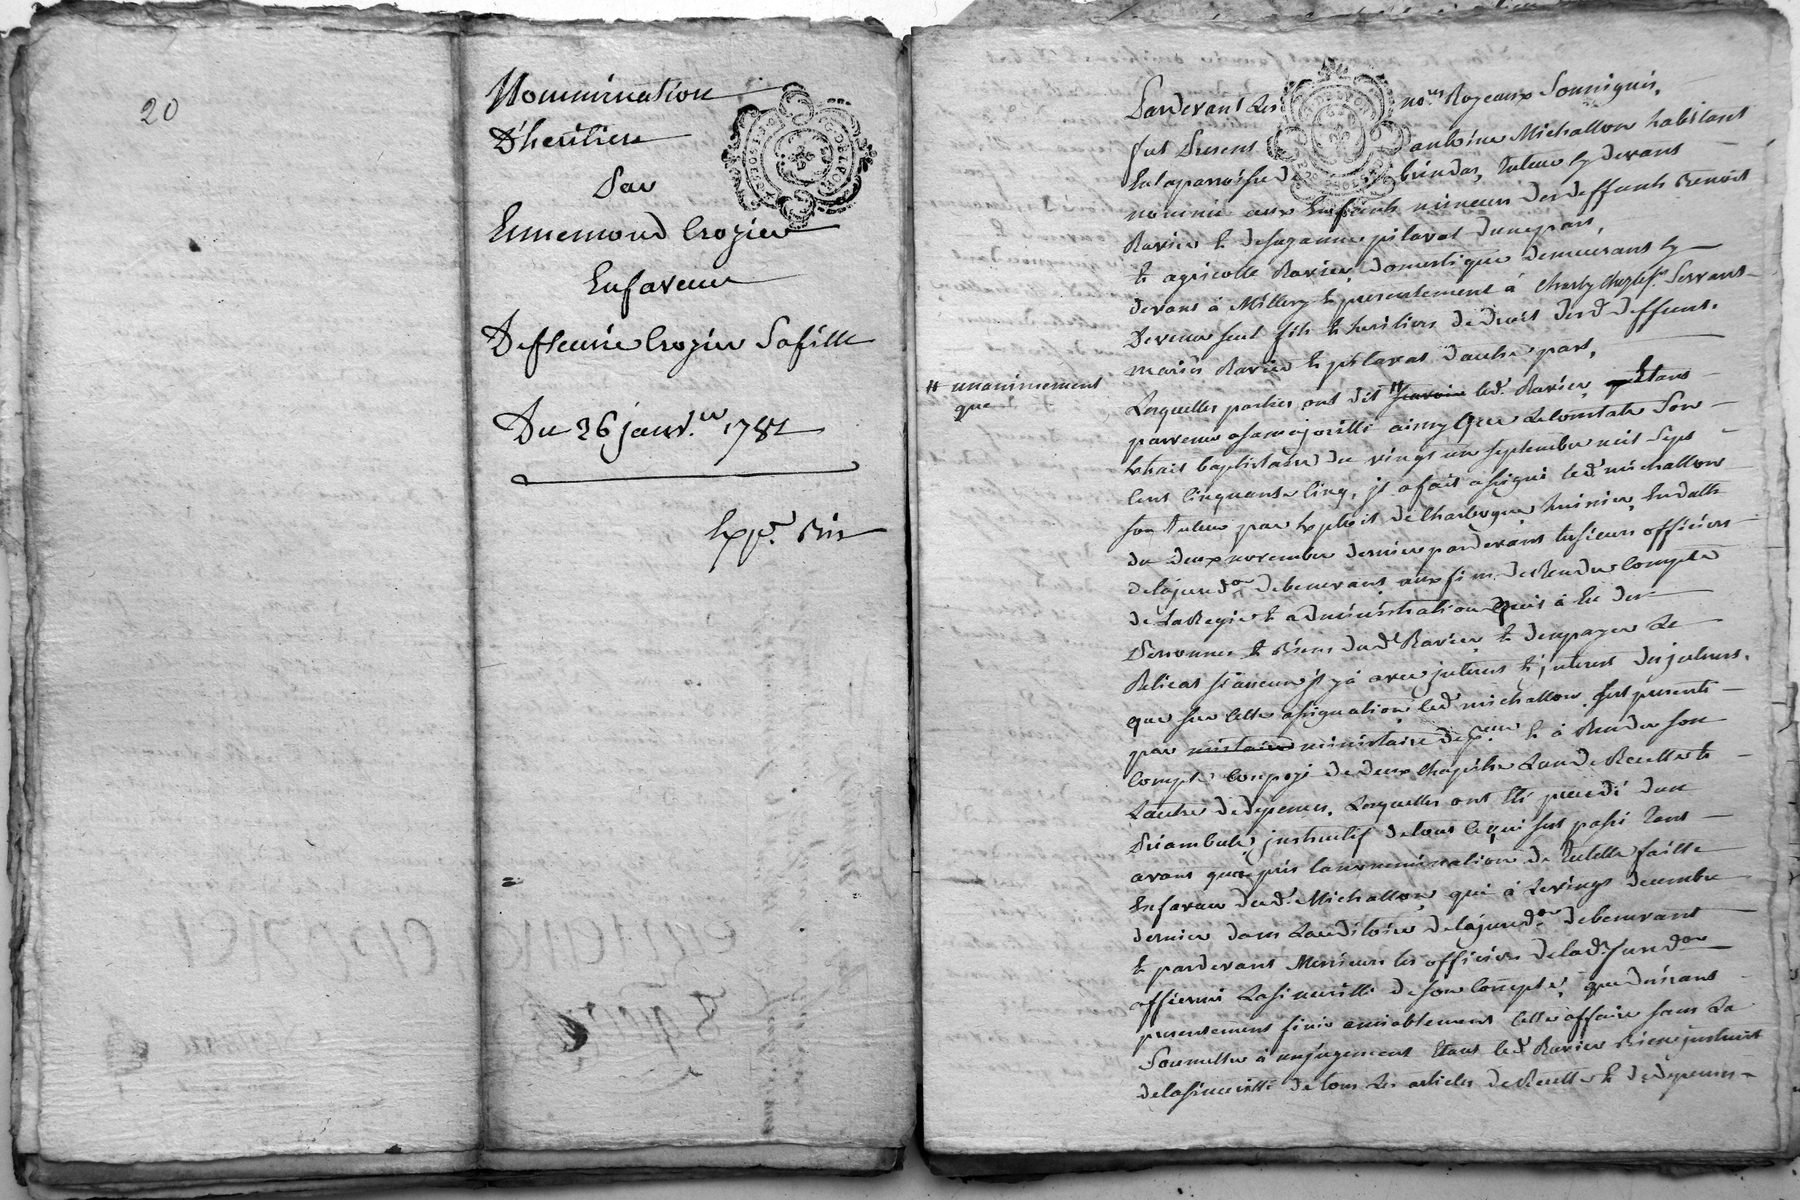 20
Nommination
D'heritiere
Par
Ennemond Crozier
En faveur
De fleurie Crozier Sa fille
Du 26 janv.er 1782
Exp.d
Pardevant Les no.res Royeaux Soussignés,
fut Present antoine Michallon habitant
En la parroisse de brindas, Tuteur cy devant
nommé aux Enfants mineurs des deffunts Benoit
Ravier & de suzanne pilavat d'une part,
& agricolle Ravier, domestique demeurant cy
devant à Millery & presentement à Charly
Devenu seul fils & heritiers de droit des d. deffunts
mariés Ravier & pilavat d'autre part,
Lesquelles parties ont dit # led. Ravier Etant
# unanimement
que
parvenu a sa majorité ainsy que Le constate Son
Extrait baptistaire du vingt un septembre mil Sept
Cent Cinquante Cinq, il a fait assigné led. michallon
son Tuteur par Exploit de huissier, En datte
du deux novembre dernier pardevant messieurs officiers
de la jurid.on de benevant aux fins de Rendre Compte
de La Regie & administration qu'il à Eu des
Personnes & Biens dud. Ravier, & d'en payer Le
Relicat si aucun il y à avec interest & interest des interest,
que sur Cette assignation led. michallon s'est presenté
par ministaire de & à Rendu son
Compte Composé de deux Chapitre L'un de Recette &
L'autre de depences, Lesquelles ont Eté precedé d'un
Préambule instructif de tout ce qui s'est passé Tant
avant qu'apris la nommination de Tutelle faitte
En faveur dud. Michallon, qui à Le vingt decembre
dernier dans L'auditoire de la jurid.on de benevant
& pardevant Messieurs les officiers de lad. Jurid.on
affirmé La sincerité de son Compte, que desirant
presentement finir amiablement Cette affaire sans La
Soumettre à un jugement Etant led. Ravier Bien instruit
de la sincerité de tous Les articles de Recette & de depences